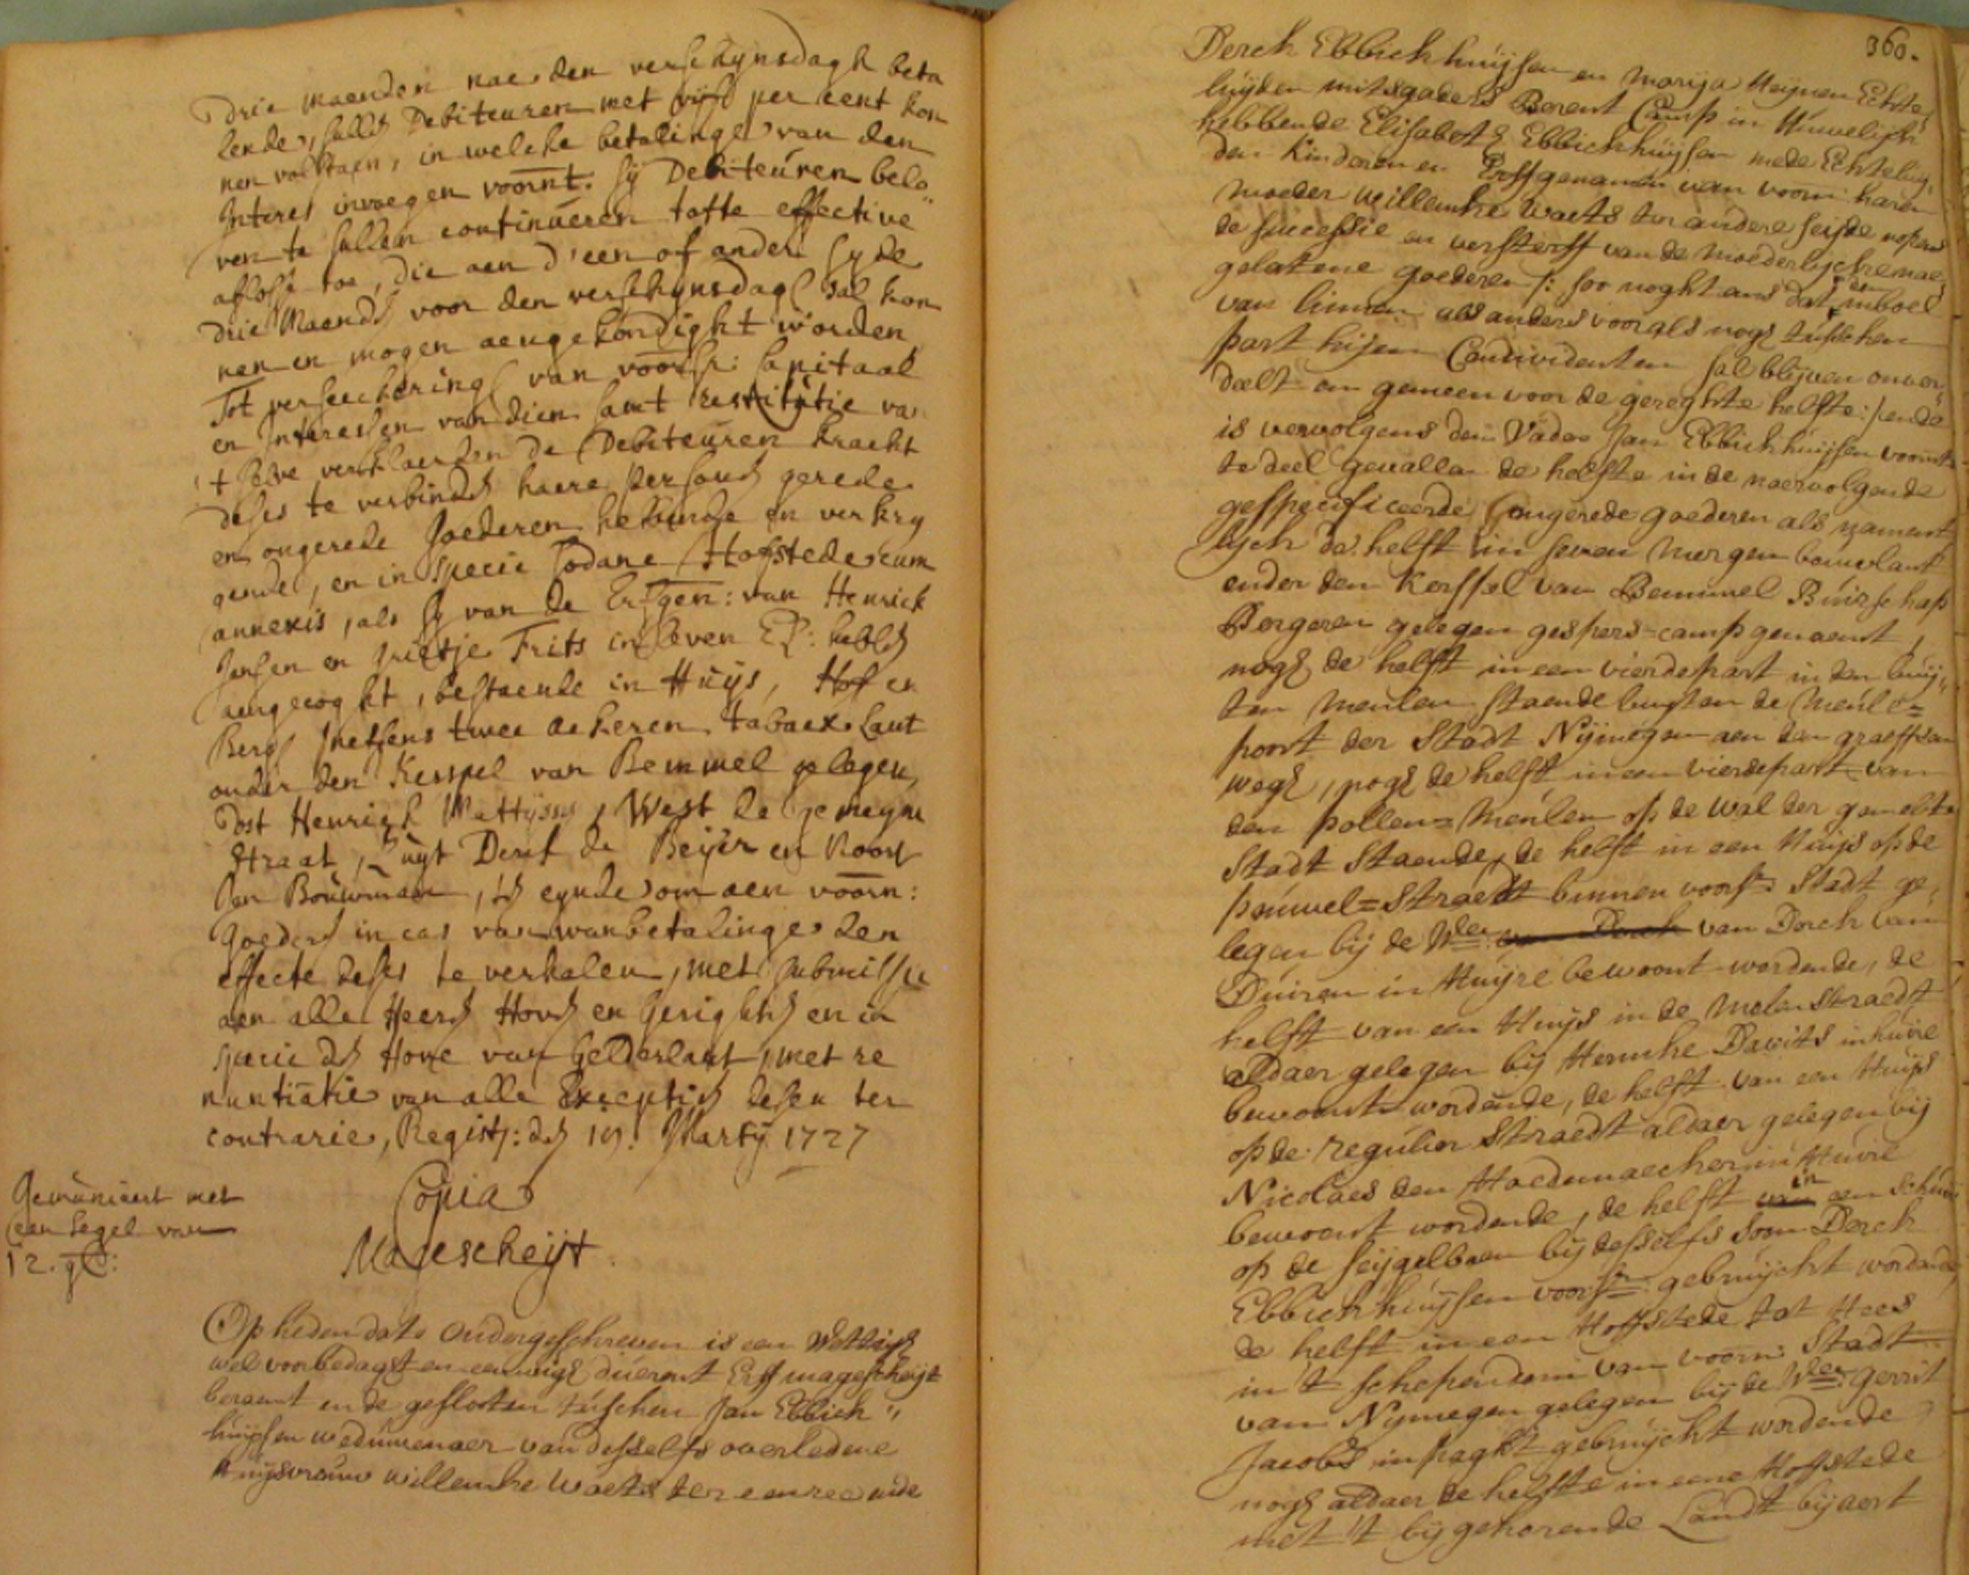 drie maenden nae den verschynsdagh beta
lende, sulld Debiteuren met vijff per cent kon
nen volstaen, in welcke betalinge van den
Interes invoegen voornt. sij Debiteúren belo„
ven te sullen continúeren totte effective
aflosse toe, die aen d'een of ander syde
drie Maend voor den verschijnsdagh sal kon
nen en mogen aengekondight worden
Tot verseeckeringh van voorsr: Capitaal
en Interessen van dien samt restitutie van
t selve verklaerden de Debiteuren kracht
deses te verbinden haere persoen gerede
en ongerede Goederen hebbende en verkry
gende, en in specie sodane Hofstede cum
annexis, als sy van de Erfgen: van Henrick
Jansen en Grietje Frits in leven El: hebbd
aengecoght, bestaende in Huijs, Hof en
Bergh nessens twee ackeren taback lant
onder den Kerspel van Bemmel gelegen,
Oost Henrigh Mattijssen, West de gemeyne
straat, Zuyt Derck de Beijer en Noort
Jan Bouwman, ten eynde om aen voorn:
Goeder in cas van wanbetalinge den
effecte deses te verhalen, met submissie
aen alle Heeren Hoven en Gerighten en in
specie den Hove van Gelderlant, met re
nuntiatie van alle Exceptien desen ter
contrarie, Registr: den 19. Martij 1727
Copia
Magescheijt
Gemunieert met
een segel van
12. gl:
Op heden dato ondergeschreven is een Wettigh
wel voorbedaght en eeuwigh duerent Erffmagescheijt
beraemt ende geslooten tússchen Jan Ebbick„
huijsen weduwenaer van desselfs overledene
Huijsvrouw Willemke Waets ter eenre ende
360.
Derck Ebbickhuijsen en Marija Heijnen Echte„
luijden mitsgaders Berent Camp in Húwelijck
hebbende Elisabeth Ebbickhúijsen mede Echteluij„
den Kinderen en Erffgenamen van voorn: haren
moeder Willemke Waets ter andere seijde nopens
de successie en versterff van de moederlijcke nae„
gelatene goederen /: soo noghtans dat den inboel
van linnen als anders voor als nogh tusschen
part hijen Condividenten sal blijven onver„
deelt en gemeen voor de gereghte helfte :/ ende
is vervolgens den Vader Jan Ebbickhuijsen voornt.
te deel gevallen de helfte in de naervolgende
gespecificeerde ongerede goederen als nament„
lijck de helft in seven mergen bouwlant
onder den Kerspel van Bemmel Búirschap
Bergeren gelegen gespers=camp genaemt,
nogh de helft in een vierdepart in den buij„
ten meulen staende buijten de Meule=
poort der Stadt Nijmegen aen den graefsen
wegh, nogh de helft in een vierdepart van
den pollen=Meulen op de wal der gemelte
Stadt Staende, de helft in een Huijs op de
paúwel=Straedt binnen voors: Stadt ge„
legen bij de Wder van Derck van
Duiren in Huijre bewoont wordende, de
helft van een Huijs in de Molen Straedt
aldaer gelegen bij Hermke Davits in huire
bewoont wordende, de helft van een Huijs
op de Regulier Straedt aldaer gelegen bij
Nicolaes den Hoedemaecker in Huire
bewoont wordende, de helft in een schúer
op de seijgelbaen bij desselfs Soon Derck
Ebbickhúijsen voorsr gebrúijckt wordende
de helft in een Hoffstede tot Hees
in 't schependom van voorn: Stadt
van Nijmegen gelegen bij de Wder Gerrit
Jacobs in paght gebruijckt wordende
nogh aldaer de helfte in eene Hoffstede
met 't bijgehorende Landt bij aert